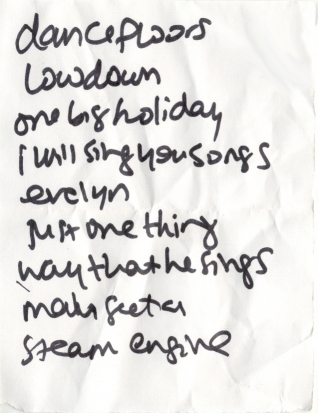 dancefloors
lowdown
one big holiday
i will sing you songs
evelyn
just one thing
way that he sings
mahgeeta
steam engine